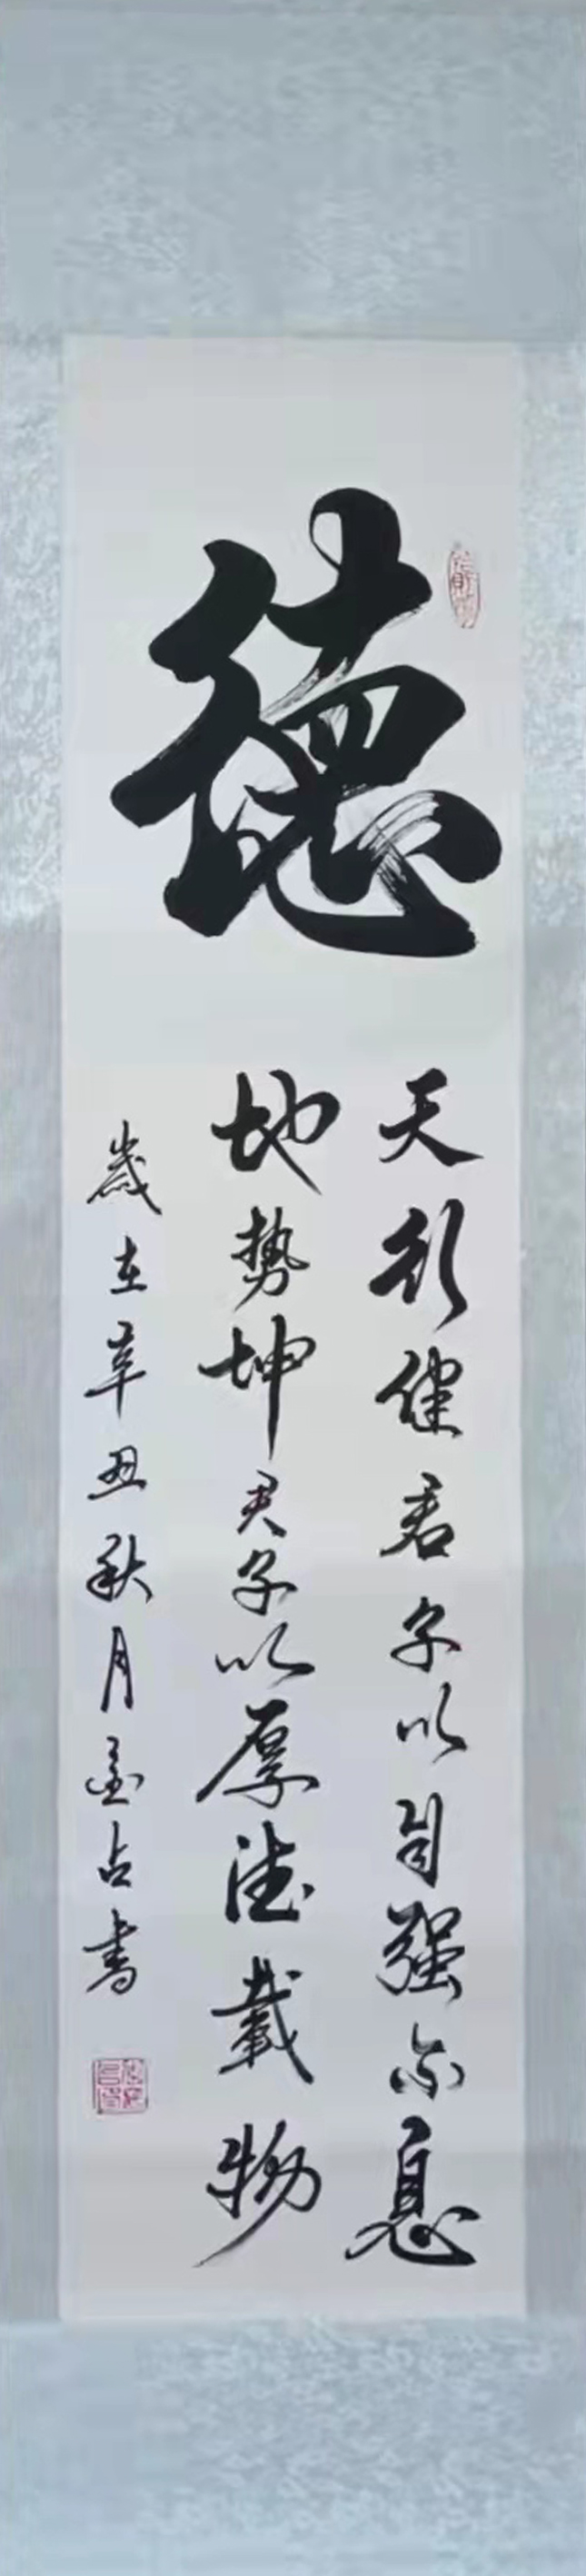 德
天行健君子以自强不息
地势坤君子以厚德载物
岁在辛丑秋月
占书